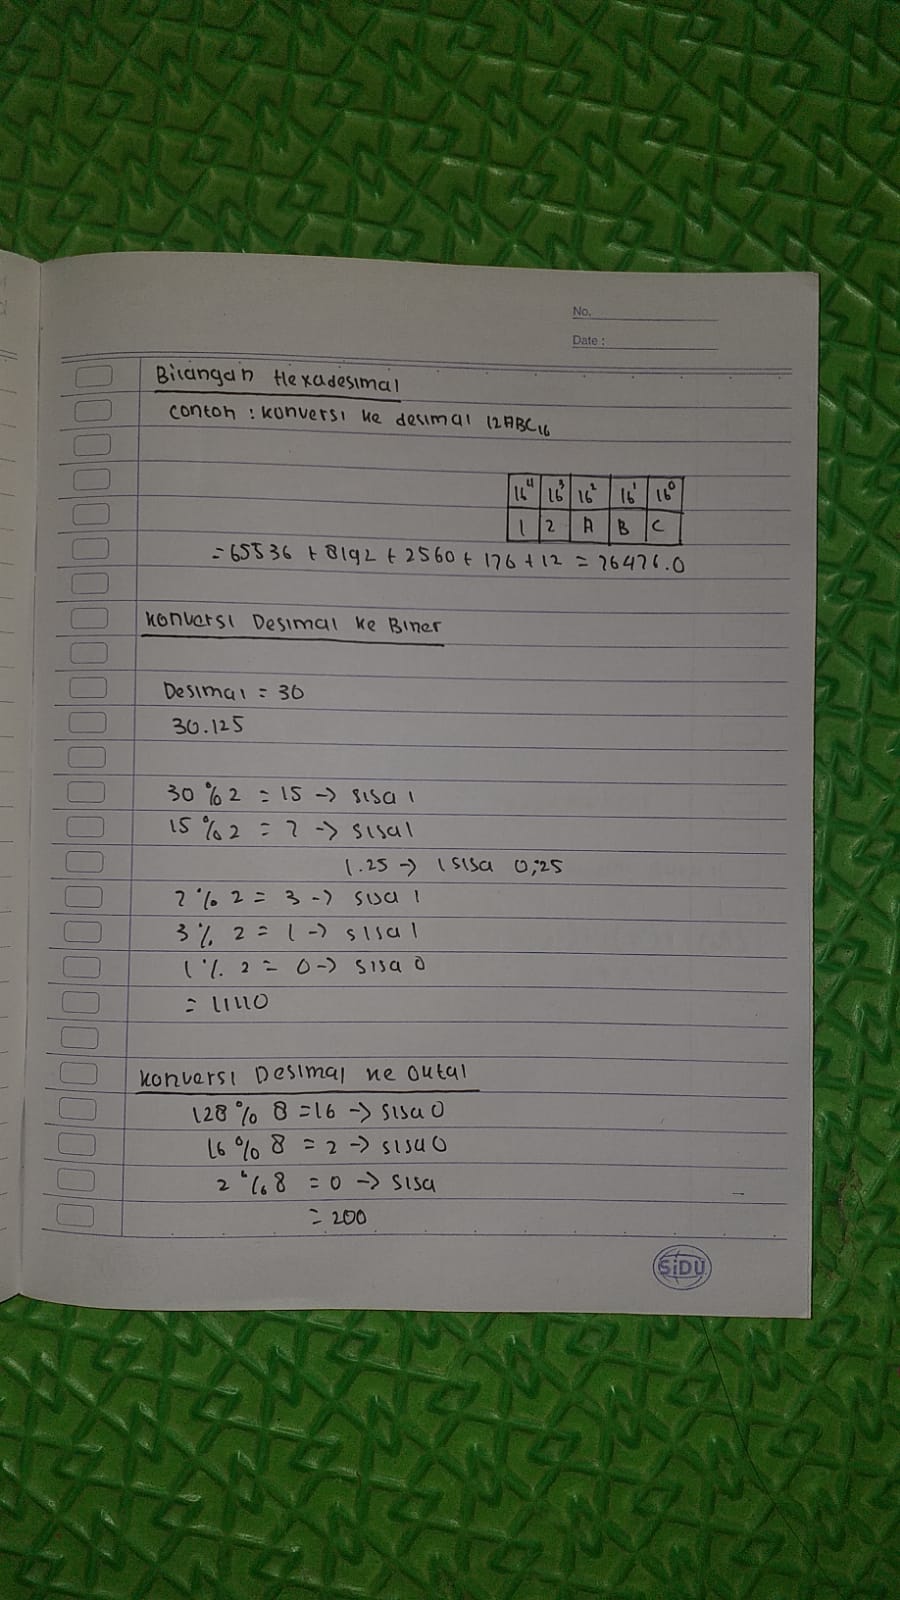 No.
Date :
Bilangan Hexadesimal
Contoh : Konversi ke desimal 12ABC16
16⁴ 16³ 16² 16¹ 16⁰
1 2 A B C
= 65536 + 8192 + 2560 + 176 + 12 = 76476.0
Konversi Desimal ke Biner
Desimal = 30
30.125
30 % 2 = 15 -> sisa 1
15 % 2 = 7 -> sisa 1
1.25 -> 1 sisa 0,25
7 % 2 = 3 -> sisa 1
3 % 2 = 1 -> sisa 1
1 % 2 = 0 -> sisa 0
= 11110
Konversi Desimal ke Oktal
128 % 8 = 16 -> sisa 0
16 % 8 = 2 -> sisa 0
2 % 8 = 0 -> sisa
= 200
SiDU